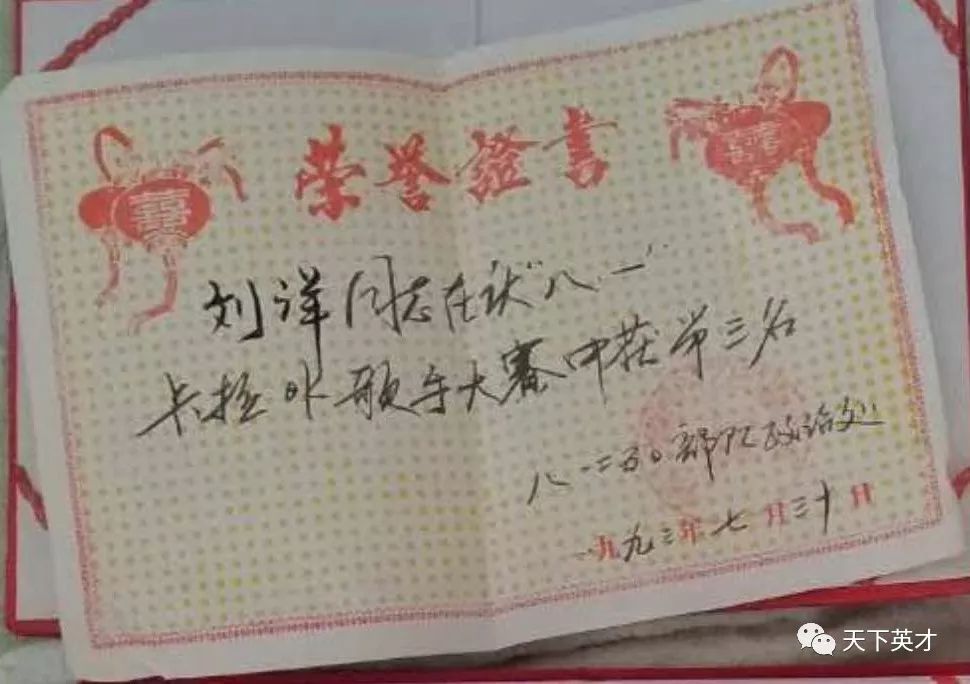 荣誉證書
刘洋同志在庆"八·一"
卡拉OK歌手大赛中获第三名
八一二五〇部队政治处
一九九三年七月三十日
天下英才